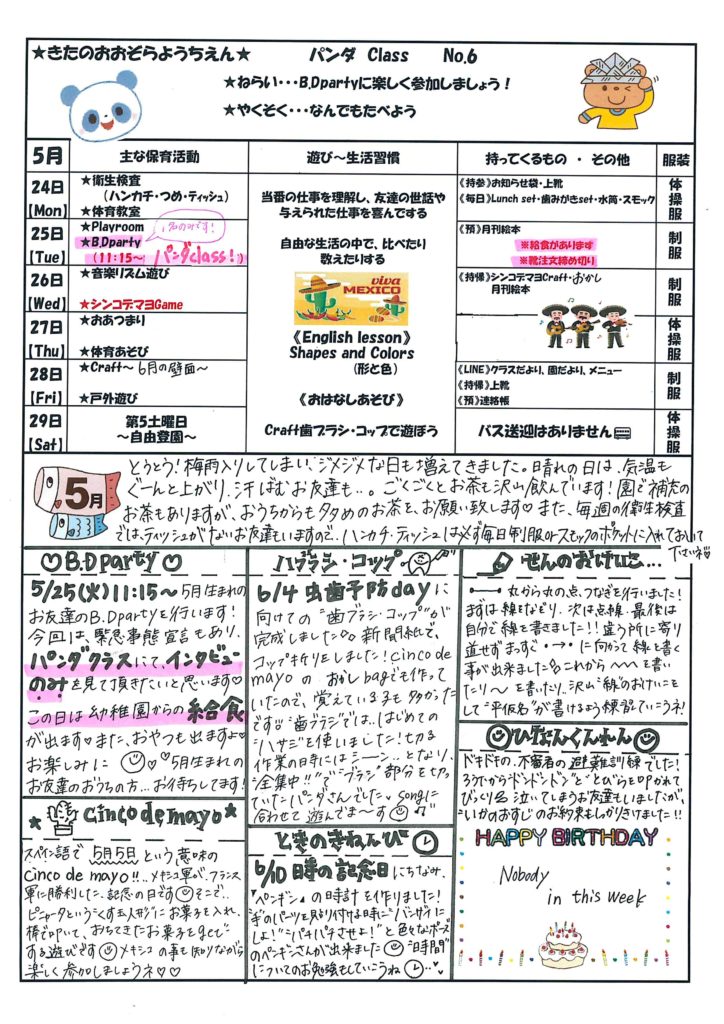 ★きたのおおぞらようちえん★ パンダ Class No.6
★ねらい・・・B.Dpartyに楽しく参加しましょう！
★やくそく・・・なんでもたべよう
5月 主な保育活動 遊び～生活習慣 持ってくるもの ・ その他 服装
24日
【Mon】
★衛生検査
（ハンカチ・つめ・ティッシュ）
★体育教室
《持参》お知らせ袋・上靴
《毎日》Lunch set・歯みがきset・水筒・スモック
体操服
25日
【Tue】
★Playroom
★B.Dparty
（11:15～ パンダclass!）
1名のみです！
《預》月刊絵本
※給食があります
※靴注文締め切り
制服
26日
【Wed】
★音楽リズム遊び
★シンコデマヨGame
《持帰》シンコデマヨCraft・おかし
月刊絵本
制服
27日
【Thu】
★おあつまり
★体育あそび
体操服
28日
【Fri】
★Craft～6月の壁面～
★戸外遊び
《LINE》クラスだより、園だより、メニュー
《持帰》上靴
《預》連絡帳
制服
29日
【Sat】
第5土曜日
～自由登園～
バス送迎はありません
体操服
当番の仕事を理解し、友達の世話や
与えられた仕事を喜んでする
自由な生活の中で、比べたり
数えたりする
viva
MEXICO
《English lesson》
Shapes and Colors
（形と色）
《おはなしあそび》
Craft歯ブラシ・コップで遊ぼう
5月
とうとう！梅雨入りしてしまい、ジメジメな日も増えてきました。晴れの日は、気温も
ぐーんと上がり、汗ばむお友達も…。ごくごくとお茶も沢山飲んでいます！園で補充の
お茶もありますが、おうちからも多めのお茶を、お願い致します♡また、毎週の衛生検査
では、ティッシュがないお友達もいますので、ハンカチ・ティッシュは必ず毎日制服orスモックのポケットに入れておいて
下さいネ♡
♡B.Dparty♡
5/25(火)11:15～5月生まれの
お友達のB.Dpartyを行います！
今回は、緊急事態宣言もあり、
パンダクラスにて、インタビュー
のみを見て頂きたいと思います♡
この日は幼稚園からの給食
が出ます♡また、おやつも出ますよ♡
お楽しみに♡5月生まれの
お友達のおうちの方…お待ちしてます！
ハブラシ・コップ
6/4 虫歯予防dayに
向けての“歯ブラシ・コップ”が
完成しました。新聞紙で、
コップ折りをしました！cinco de
mayoの おかしbagも作って
いたので、覚えている子も多かった
です。“歯ブラシ”では、はじめての
“ハサミ”を使いました！切る
作業の時にはシーン…となり、
“全集中!!”で“ブラシ”部分を切っ
ていたパンダさんでした♡songに
合わせて遊んでま～す
せんのおけいこ…
丸から丸の点つなぎを行いました！
まずは線をなぞり、次は点線、最後は
自分で線を書きました!!違う所に寄り
直せずまっすぐ・→・に向かって線を書く
事が出来ました。これから～～を書い
たり～を書いたり、沢山“線”のおけいこを
して“平仮名”が書けるよう練習していこうネ！
ひなんくんれん
ドキドキの、不審者の避難訓練でした！
ろうかから“ドンドンドン”と、とびらを叩かれて
びっくり&泣いてしまうお友達もいましたが、
“いかのおすし”のお約束もしっかりきけました!!
HAPPY BIRTHDAY
Nobody
in this week
★cinco de mayo★
スペイン語で 5月5日 という意味の
Cinco de mayo!!…メキシコ軍が、フランス
軍に勝利した、記念の日です。そこで…
ピニャータというくす玉人形にお菓子を入れ、
棒で叩いて、おちてきたお菓子をgetで
する遊びです。メキシコの事も知りながら
楽しく参加しましょうネ♡♡
ときのきねんび
6/10 時の記念日にちなみ、
“ペンギン”の時計を作りました！
手のパーツを貼り付ける時に“バンザイに
しよ！”“パチパチさせよ！”と色々なポーズ
のペンギンさんが出来ました “時間”
についてのお勉強もしていこうね